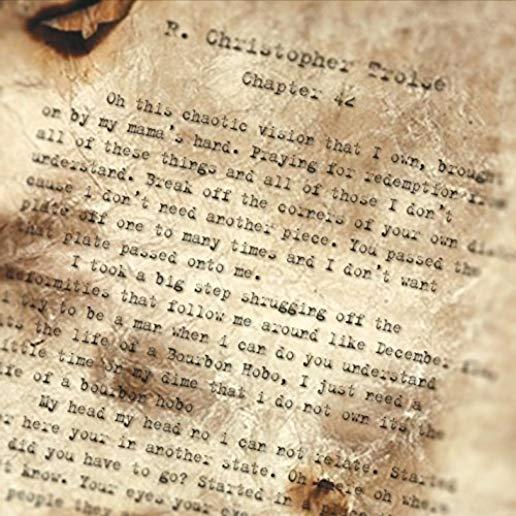 R. Christopher Troise
Chapter 42
Oh this chaotic vision that I own, brought
on by my mama's hand. Praying for redemption from
all of these things and all of those I don't
understand. Break off the corners of your own
cause i don't need another piece. You passed the
plate off one to many times and I don't want
that plate passed onto me.
I took a big step shrugging off the
deformities that follow me around like December
I try to be a man when i can do you understand
its the life of a Bourbon Hobo, I just need a
little time or my dime that i do not own its the
life of a bourbon hobo
My head my head no i can not relate. Started
or here your in another state. Oh where oh where
did you have to go? Started in a
t know. Your eyes your eyes
people they